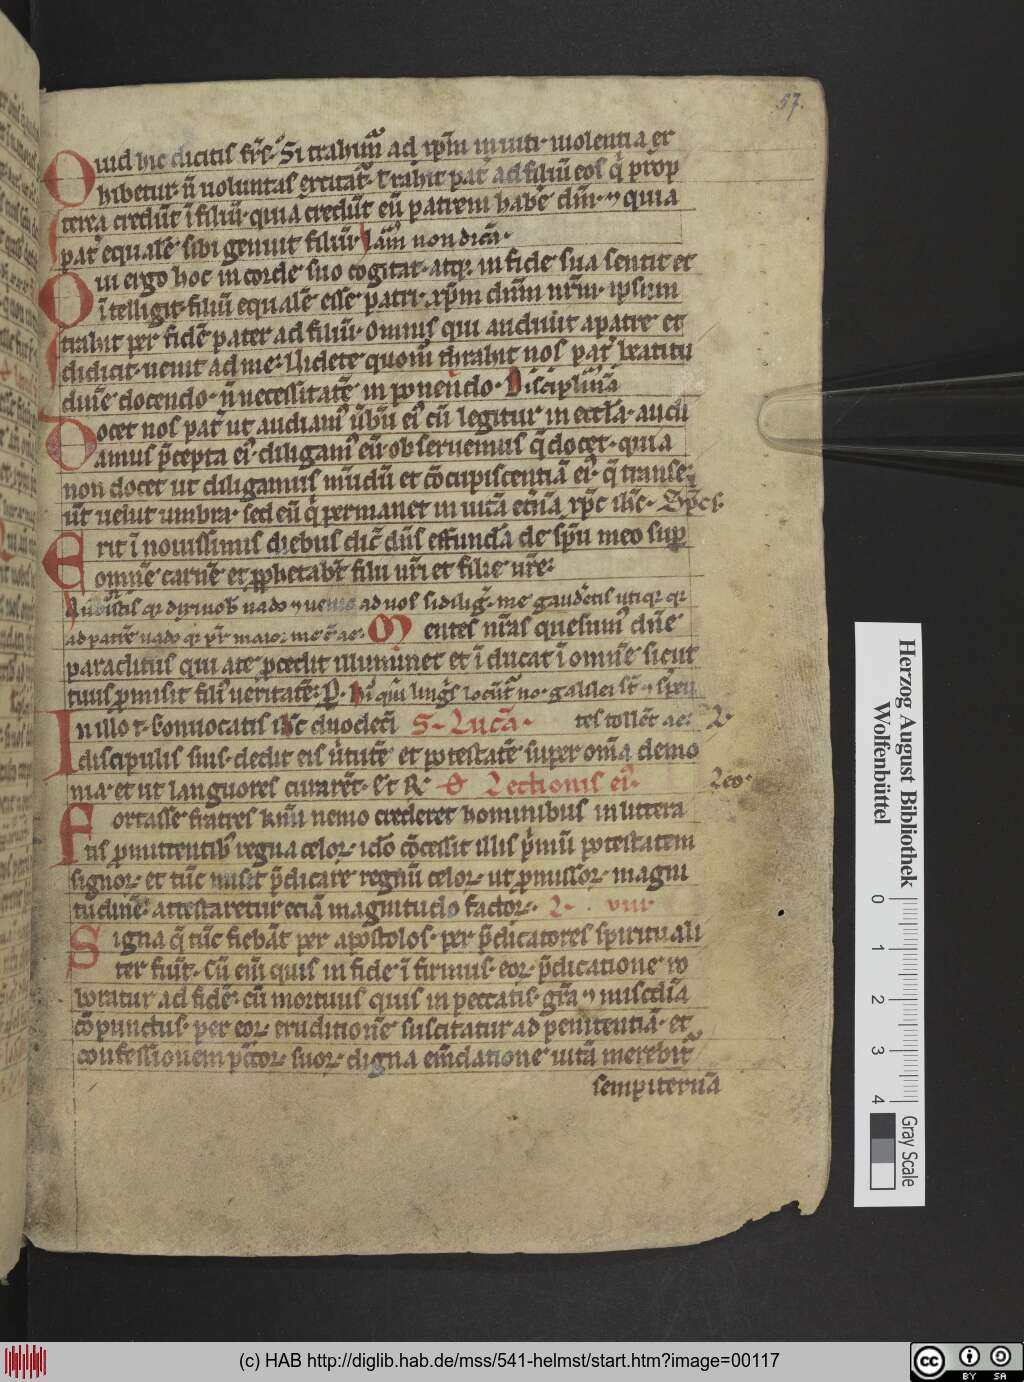 57.
Quid hic dicitis fr̄s. Si trahimur ad xp̄m inuiti. uiolentia et
hibetur n̄ uoluntas excitat᷑. Trahit pat᷑ ad filiū eos q̇ prop
terea credūt ī filiū. quia credūt eū patrem habē dm̄. quia
pat᷑ equalē sibi genuit filiū. Iam̄ non dicā.
Qui ergo hoc in corde suo cogitat. atq; in fide sua sentit et
ītelligit. filiū equalē esse patri. xp̄m dn̄m nr̄m. ipsum
trahit per fidē pater ad filiū. Omnis qui audiuit apatre et
didicit. uenit ad me. Uidete quom̄ trahit nos pat᷑ beatitu
dinē docendo. n̄ necessitatē inponendo. Disciplinā
Docet nos pat᷑ ut audiamꝰ ūbū eiꝰ cū legitur in eccl̄a. audi
amus p̄cepta eiꝰ. diligamꝰ eū. obseruemus q̄ docet. quia
non docet ut diligamus mūdū et cōcupiscentiā eiꝰ. q̄ transe
ūt uelut umbra. sed eū q̇ permanet in uitā et̄nā xp̄c ih̄c. Sp̄c s.
Erit ī nouissimis diebus dic̄ dn̄s effundā de sp̄u meo sup
omnē carnē et ꝓphetabūt filii ur̄i et filie ur̄e.
Audistis qr dixi uob̄ uado uenio ad uos si diligr̄. me gaudetis utiqr qr
ad patrē uado qr pr̄ maior me ē ae. Mentes nr̄as quesumꝰ dn̄e
paraclitus qui ate ꝓcedit illuminet et īducat ī omnē sicut
tuus ꝓmisit filiꝰ ueritatē.
In illo t. Conuocatis ih̄c duodecī S. Lucā. tes tollēt ae.
discipulis suis. dedit eis ūtutē et potestatē super om̄a demo
nia. et ut languores curarēt. Et R̄. Lectionis eiꝰ. Leo.
Fortasse fratres kmī nemo crederet hominibus inlittera
tis ꝓmittentib; regna celoꝝ. idō cōcessit illis p̄mū potestatem
signoꝝ. et tūc misit p̄dicare regnū celoꝝ. ut ꝓmissoꝝ magni
tudinē. attestaretur eciā magnitudo factoꝝ. L. viii.
Signa q̄ tūc fiebāt per apostolos. per p̄dicatores spirituali
ter fiūt. Cū eniꝫ quis in fide īfirmus. eoꝝ p̄dicatione ro
boratur ad fidē. cū mortuus quis in peccatis. gr̄a miscd̄ia
cōpunctus. per eoꝝ eruditionē suscitatur ad penitentiā. et
confessionem pc̄coꝝ suoꝝ. digna emēdatione uitā merebit᷑
sempiternā
Herzog August Bibliothek
Wolfenbüttel
0 1 2 3 4
Gray Scale
(c) HAB http://diglib.hab.de/mss/541-helmst/start.htm?image=00117
cc BY SA